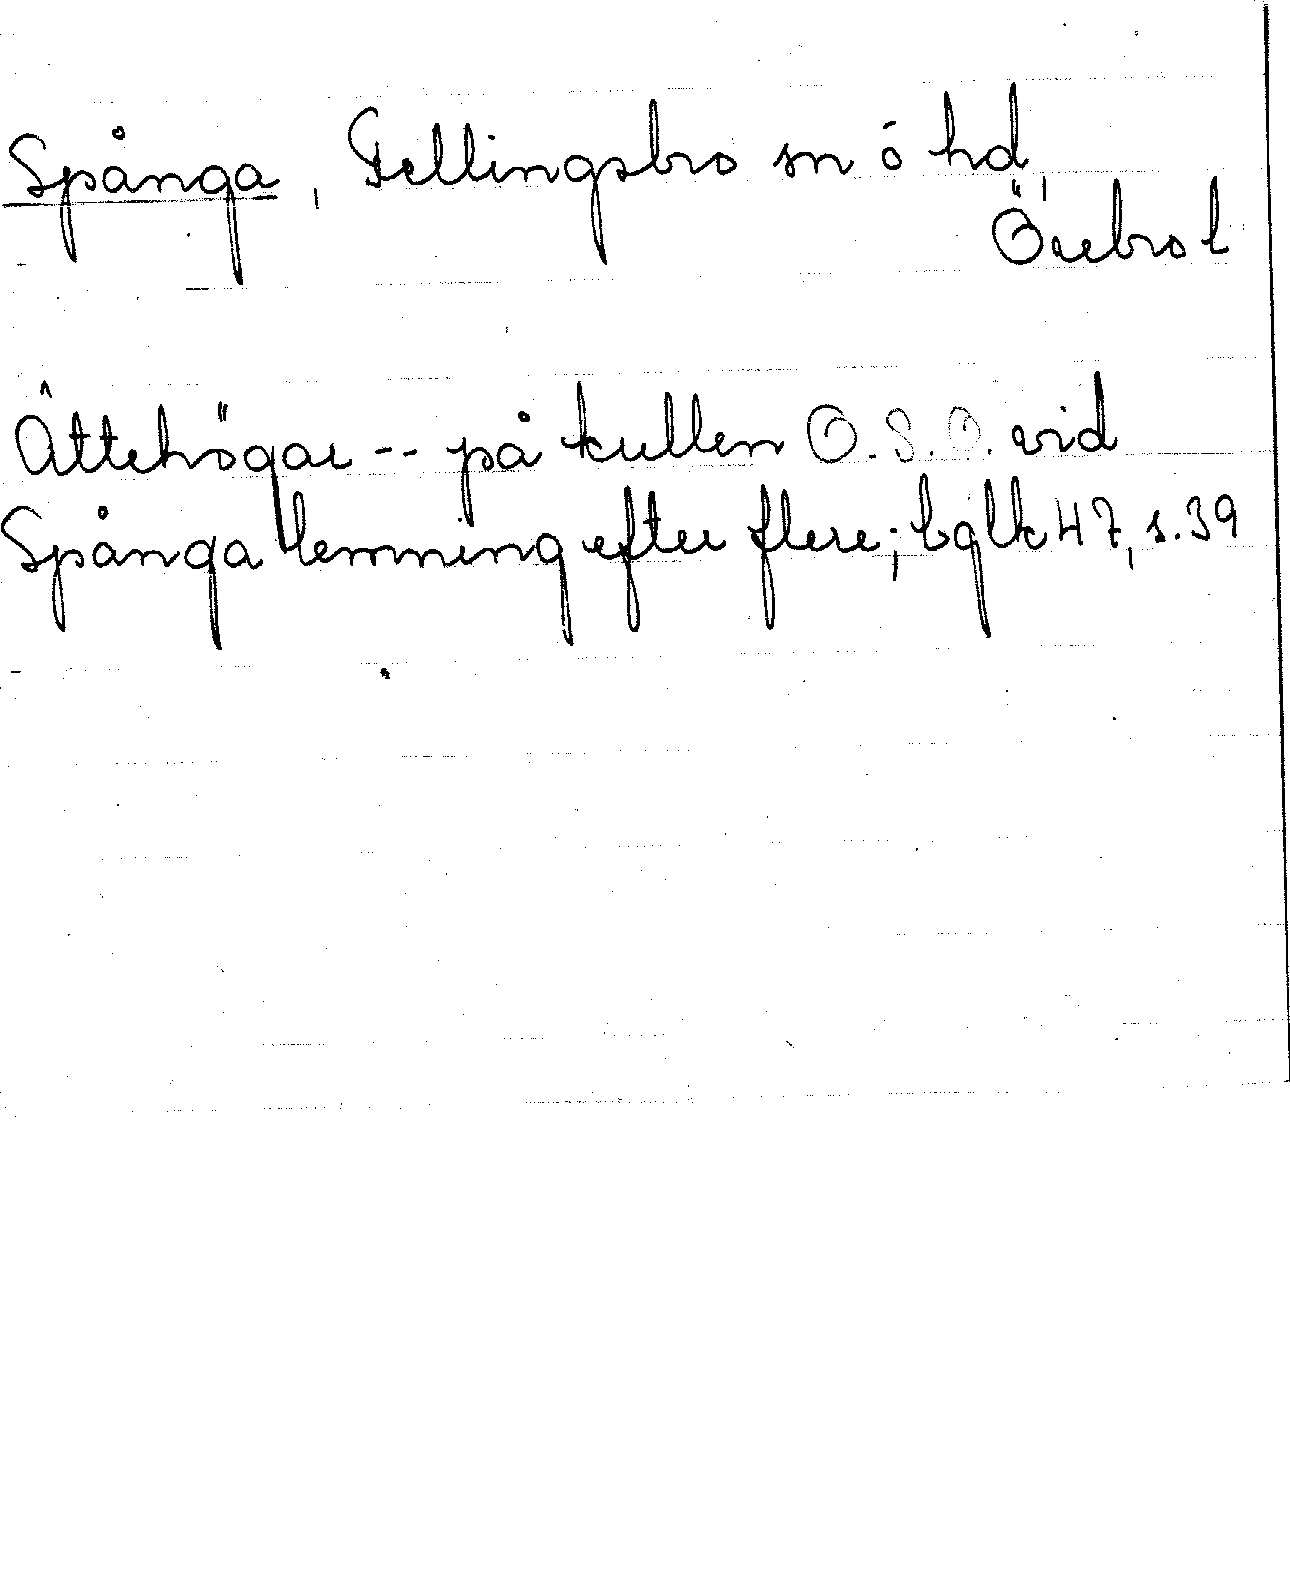 Spånga, Fellingsbro sn o hd,
Örebro l
Ättehögar -- på kullen O.S.O. vid
Spånga lemning efter flere; bglk 47, s.39